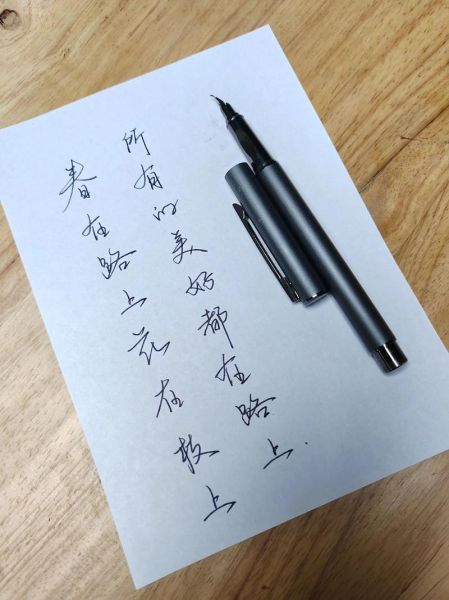 春在路上花在枝上
所有的美好都在路上.